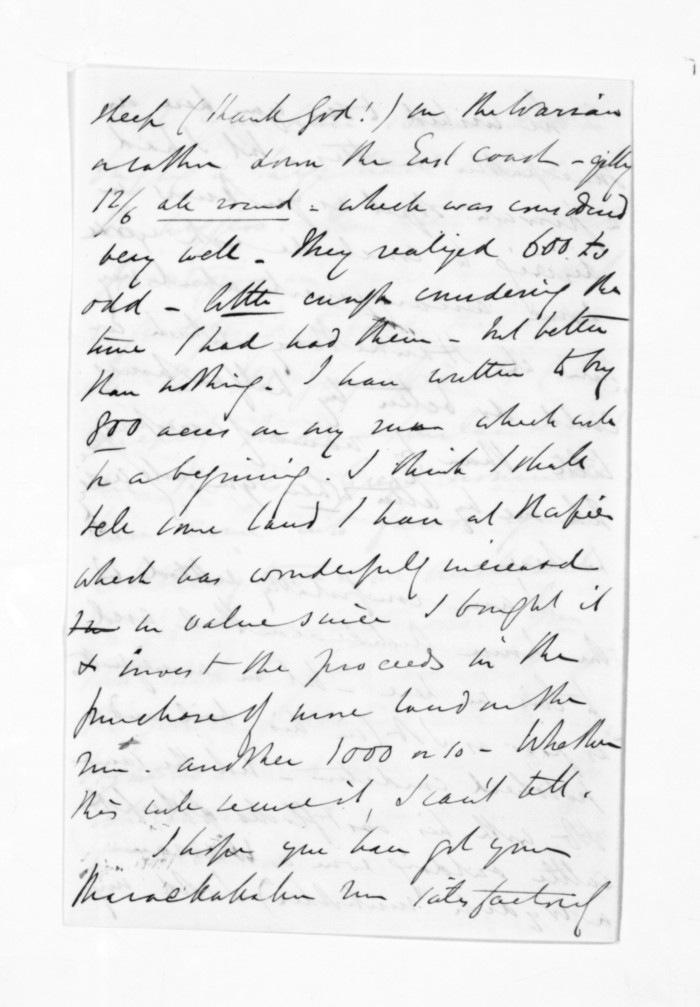 sheep (thank God!) on the Wairau
another down the East Coast - getting
12/6 all round - which was considered
very well - They realized 600 £s
odd - little enough considering the
time I had had them - but better
than nothing. I have written to buy
800 acres on my run which will
be a beginning. I think I shall
sell some land I have at Napier
which has wonderfully increased
in value since I bought it
& invest the proceeds in the
purchase of more land on the
run. another 1000 or so - Whether
this will secure it, I can't tell.
I hope you have got your
run satisfactorily